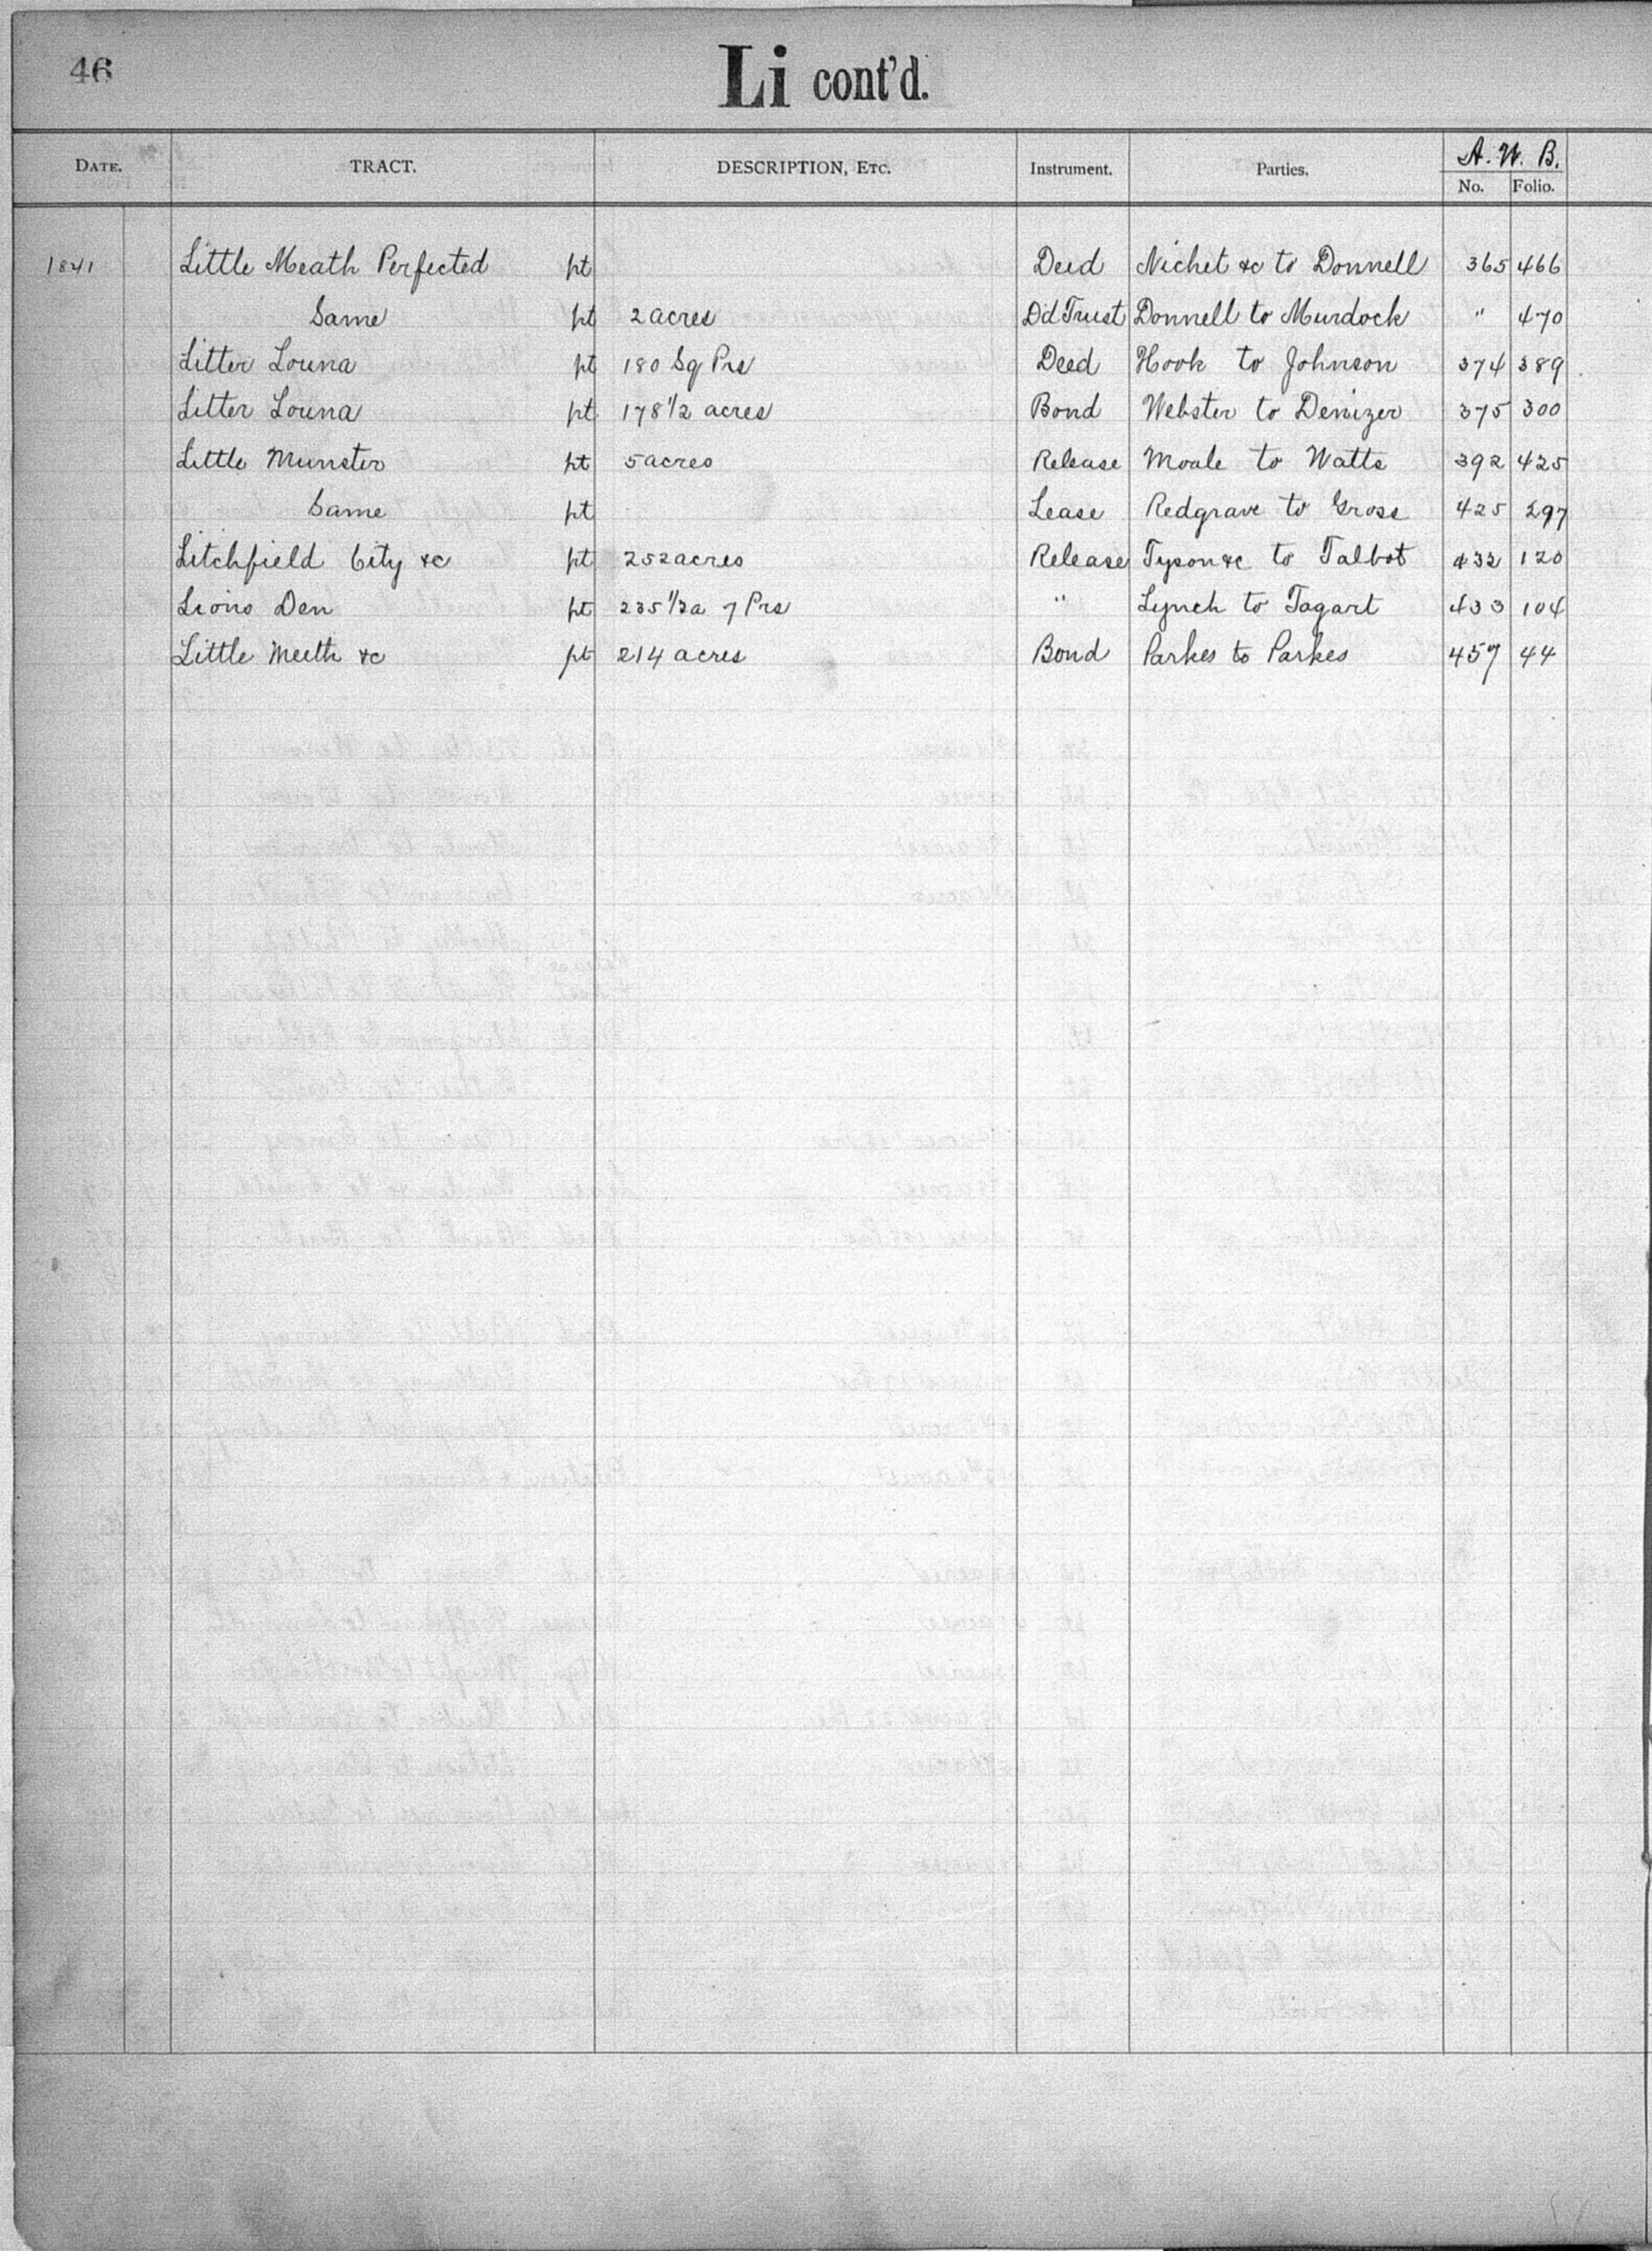 46
Li cont'd.
DATE. TRACT. DESCRIPTION, ETC. Instrument. Parties. A. W. B. No. Folio.
1841 Little Meath Perfected pt Deed Nichet &c to Donnell 365 466
Same pt 2 acres Dd Trust Donnell to Murdock " 470
Litter Louna pt 180 Sq Prs Deed Hook to Johnson 374 389
Litter Louna pt 178 1/2 acres Bond Webster to Denizer 375 300
Little Munster pt 5 acres Release Moale to Watts 392 425
Same pt Lease Redgrave to Gross 425 297
Litchfield City &c pt 252 acres Release Tyson &c to Talbot 432 120
Lions Den pt 235 1/2 a 7 Prs " Lynch to Tagart 433 104
Little Meeth &c pt 214 acres Bond Parkes to Parkes 457 44